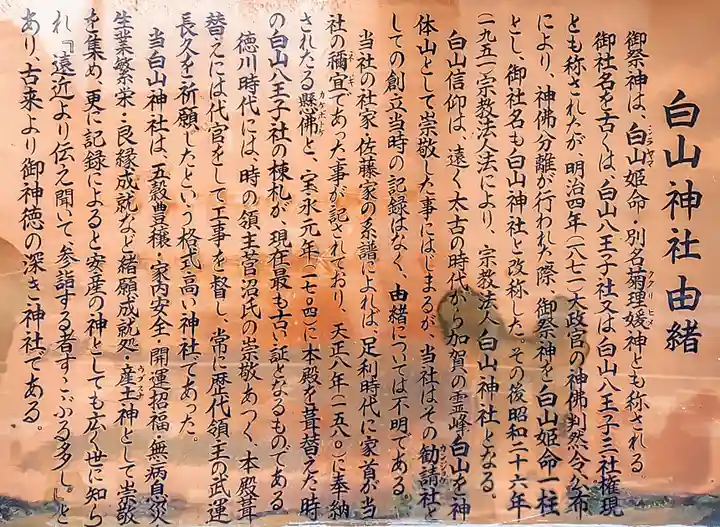 白山神社由緒
御祭神は、白山姫命・別名菊理媛神とも称される。
シラヤマ
ククリヒメ
御社名を古くは、白山八王子社又は白山八王子三社権現
とも称されたが、明治四年(一八七一)大政官の神佛判然令公布
により、神佛分離が行われた際、御祭神を白山姫命一柱
とし、御社名も白山神社と改称した。その後昭和二十六年
(一九五一)宗教法人法により、宗教法人白山神社となる。
白山信仰は、遠く太古の時代から加賀の霊峰白山を神
体山として崇敬した事にはじまるが、当社はその勧請社と
カンジョウ
しての創立当時の記録はなく、由緒については不明である。
当社の社家佐藤家の系譜によれば、足利時代に家首が当
社の禰宜であった事が記されており、天正八年(一五八〇)に奉納
ネギ
されたる懸佛と、宝永元年(一七〇四)に本殿を葺替えた時
カケボトケ
の白山八王子社の棟札が、現在最も古い証となるものである
徳川時代には、時の領主菅沼氏の崇敬あつく、本殿葺
替えには代官をして工事を督し、常に歴代領主の武運
長久を祈願したという格式高い神社であった。
当白山神社は、五穀豊穣・家内安全・開運招福・無病息災
生業繁栄・良縁成就など緒願成就処・産土神として崇敬
ウブスナ
を集め、更に記録によると安産の神としても広く世に知ら
れ『遠近より伝え聞いて、参詣する者すこぶる多し。』と
あり、古来より御神徳の深き神社である。